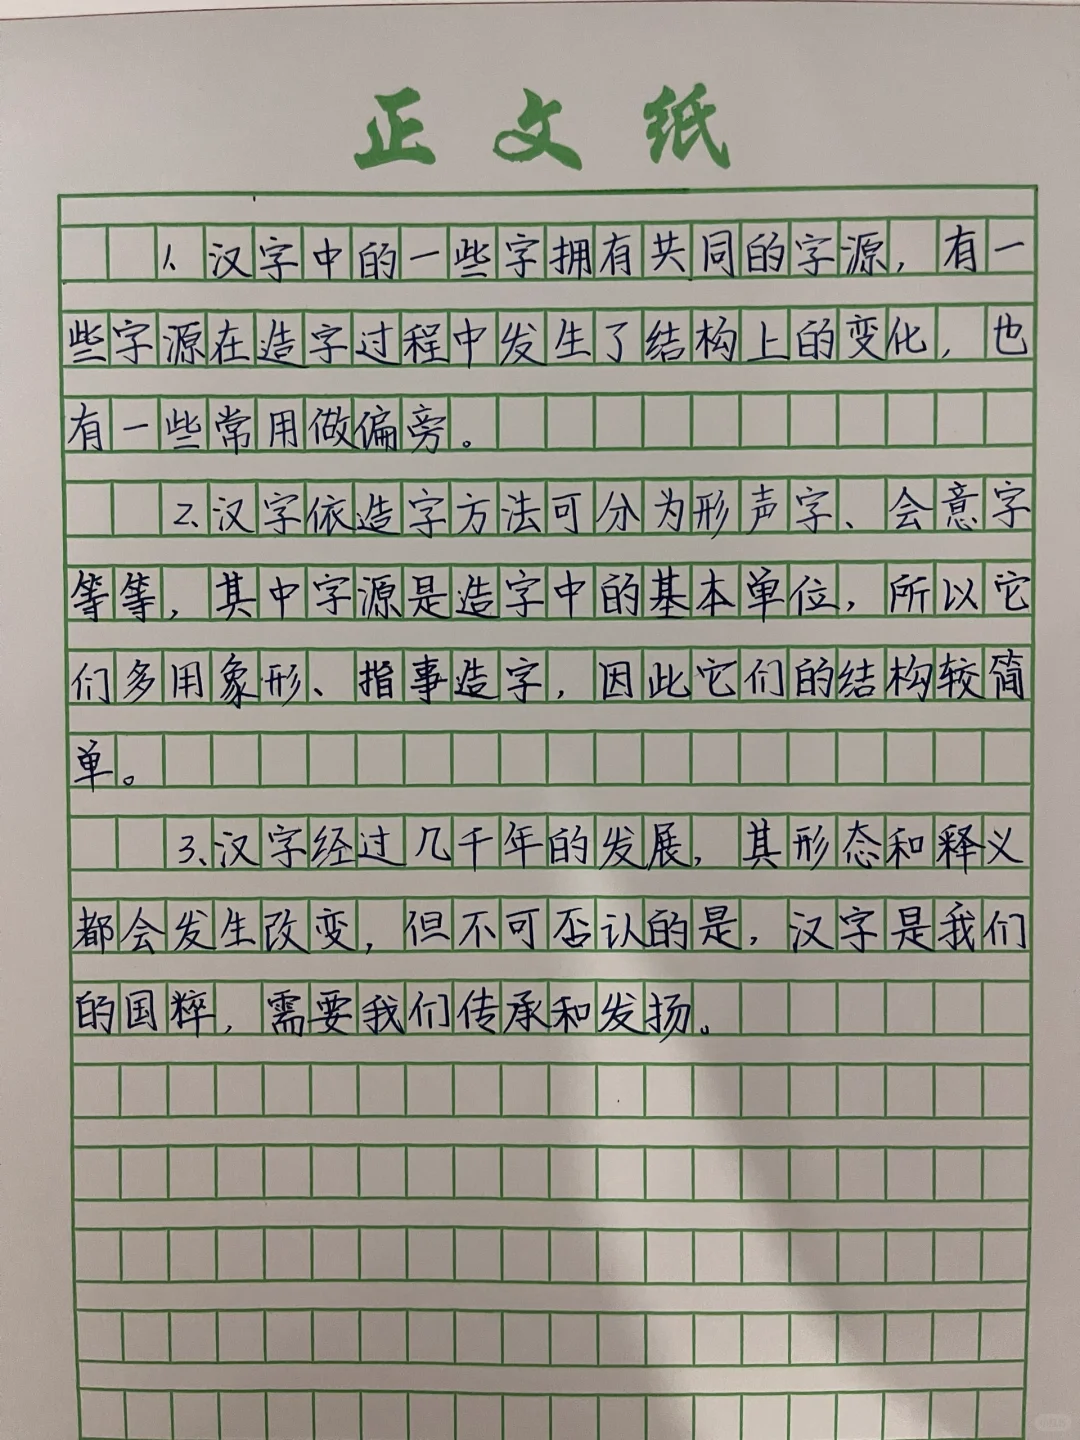 正文纸
1、汉字中的一些字拥有共同的字源，有一
些字源在造字过程中发生了结构上的变化，也
有一些常用做偏旁。
2、汉字依造字方法可分为形声字、会意字
等等，其中字源是造字中的基本单位，所以它
们多用象形、指事造字，因此它们的结构较简
单。
3、汉字经过几千年的发展，其形态和释义
都会发生改变，但不可否认的是，汉字是我们
的国粹，需要我们传承和发扬。